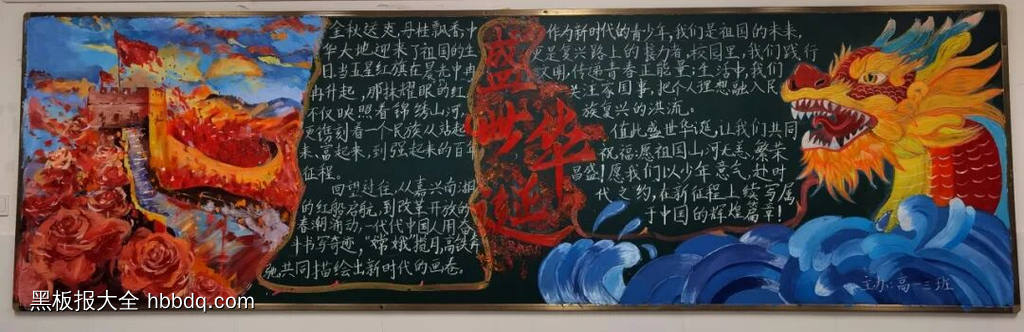 金秋送爽，丹桂飘香，中
华大地迎来了祖国的生
日。当五星红旗在晨光中冉
冉升起，那抹耀眼的红
不仅映照着锦绣山河，
更镌刻着一个民族从站起
来、富起来，到强起来的百年
征程。
回望过往，从嘉兴南湖
的红船启航，到改革开放的
春潮涌动，一代代中国人用奋
斗书写奇迹，“嫦娥”揽月，高铁奔
驰，共同描绘出新时代的画卷。
盛世华诞
作为新时代的青少年，我们是祖国的未来，
更是复兴路上的接力者。校园里，我们践行
文明，传递青春正能量；生活中，我们
关注家国事，把个人理想融入民
族复兴的洪流。
值此盛世华诞，让我们共同
祝福：愿祖国山河大美，繁荣
昌盛！愿我们以少年意气，赴时
代之约，在新征程上续写属
于中国的辉煌篇章！
主办：高一三班
黑板报大全 hbbdq.com